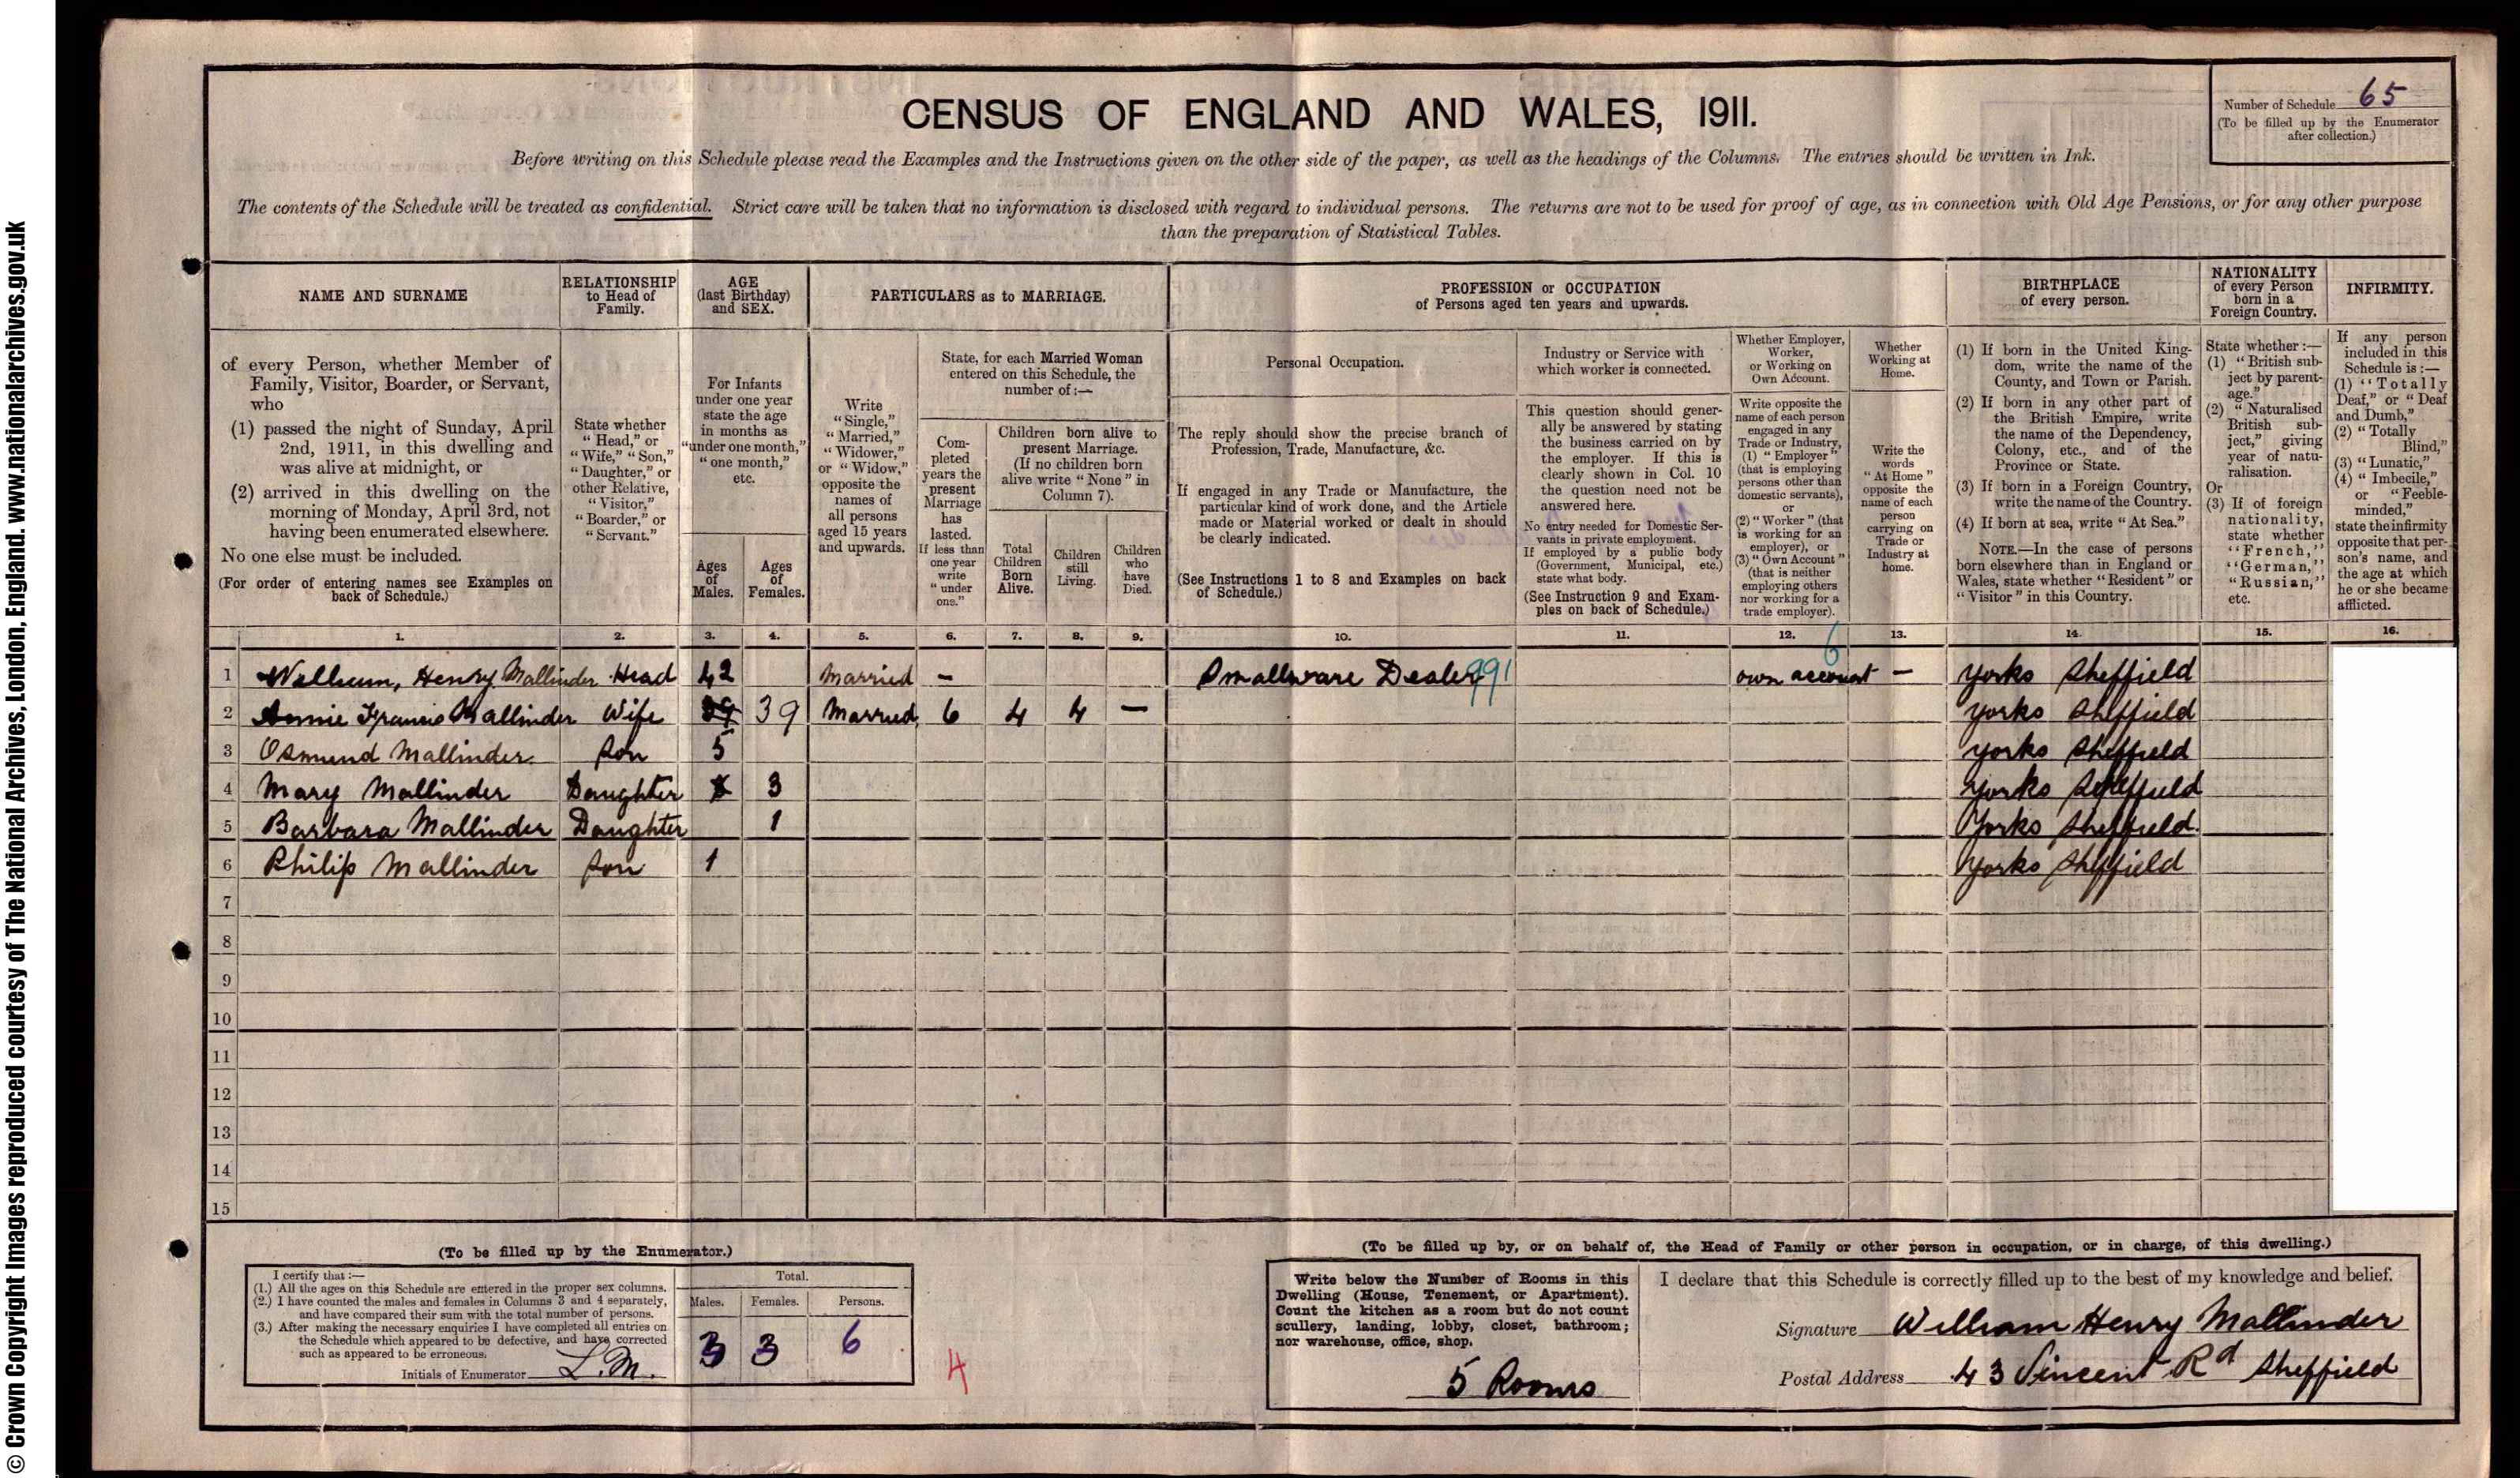 © Crown Copyright Images reproduced courtesy of The National Archives, London, England. www.nationalarchives.gov.uk
CENSUS OF ENGLAND AND WALES, 1911.
Number of Schedule 65
(To be filled up by the Enumerator
after collection.)
Before writing on this Schedule please read the Examples and the Instructions given on the other side of the paper, as well as the headings of the Columns. The entries should be written in Ink.
The contents of the Schedule will be treated as confidential. Strict care will be taken that no information is disclosed with regard to individual persons. The returns are not to be used for proof of age, as in connection with Old Age Pensions, or for any other purpose
than the preparation of Statistical Tables.
NAME AND SURNAME
of every Person, whether Member of
Family, Visitor, Boarder, or Servant,
who
(1) passed the night of Sunday, April
2nd, 1911, in this dwelling and
was alive at midnight, or
(2) arrived in this dwelling on the
morning of Monday, April 3rd, not
having been enumerated elsewhere.
No one else must be included.
(For order of entering names see Examples on
back of Schedule.)
RELATIONSHIP
to Head of
Family.
State whether
"Head," or
"Wife," "Son,"
"Daughter," or
other Relative,
"Visitor,"
"Boarder," or
"Servant."
AGE
(last Birthday)
and SEX.
For Infants
under one year
state the age
in months as
"under one month,"
"one month,"
etc.
Ages
of
Males.
Ages
of
Females.
PARTICULARS as to MARRIAGE.
Write
"Single,"
"Married,"
"Widower,"
or "Widow,"
opposite the
names of
all persons
aged 15 years
and upwards.
State, for each Married Woman
entered on this Schedule, the
number of:—
Com-
pleted
years the
present
Marriage
has
lasted.
If less than
one year
write
"under
one."
Children born alive to
present Marriage.
(If no children born
alive write "None" in
Column 7).
Total
Children
Born
Alive.
Children
still
Living.
Children
who
have
Died.
PROFESSION or OCCUPATION
of Persons aged ten years and upwards.
Personal Occupation.
The reply should show the precise branch of
Profession, Trade, Manufacture, &c.
If engaged in any Trade or Manufacture, the
particular kind of work done, and the Article
made or Material worked or dealt in should
be clearly indicated.
(See Instructions 1 to 8 and Examples on back
of Schedule.)
Industry or Service with
which worker is connected.
This question should gener-
ally be answered by stating
the business carried on by
the employer. If this is
clearly shown in Col. 10
the question need not be
answered here.
No entry needed for Domestic Ser-
vants in private employment.
If employed by a public body
(Government, Municipal, etc.)
state what body.
(See Instruction 9 and Exam-
ples on back of Schedule.)
Whether Employer,
Worker,
or Working on
Own Account.
Write opposite the
name of each person
engaged in any
Trade or Industry,
(1) "Employer"
(that is employing
persons other than
domestic servants),
or
(2) "Worker" (that
is working for an
employer), or
(3) "Own Account"
(that is neither
employing others
nor working for a
trade employer).
Whether
Working at
Home.
Write the
words
"At Home"
opposite the
name of each
person
carrying on
Trade or
Industry at
home.
BIRTHPLACE
of every person.
(1) If born in the United King-
dom, write the name of the
County, and Town or Parish.
(2) If born in any other part of
the British Empire, write
the name of the Dependency,
Colony, etc., and of the
Province or State.
(3) If born in a Foreign Country,
write the name of the Country.
(4) If born at sea, write "At Sea."
NOTE.—In the case of persons
born elsewhere than in England or
Wales, state whether "Resident" or
"Visitor" in this Country.
NATIONALITY
of every Person
born in a
Foreign Country.
State whether:—
(1) "British sub-
ject by parent-
age."
(2) "Naturalised
British sub-
ject," giving
year of natu-
ralisation.
Or
(3) If of foreign
nationality,
state whether
"French,"
"German,"
"Russian,"
etc.
INFIRMITY.
If any person
included in this
Schedule is:—
(1) "Totally
Deaf," or "Deaf
and Dumb,"
(2) "Totally
Blind,"
(3) "Lunatic,"
(4) "Imbecile,"
or "Feeble-
minded,"
state the infirmity
opposite that per-
son's name, and
the age at which
he or she became
afflicted.
1. 2. 3. 4. 5. 6. 7. 8. 9. 10. 11. 12. 13. 14. 15. 16.
6
1 William, Henry Mallinder Head 42 Married – Smallware Dealer 991 own account – Yorks Sheffield
2 Annie Francis Mallinder Wife 39 39 Married 6 4 4 – Yorks Sheffield
3 Osmund Mallinder. Son 5 Yorks Sheffield
4 Mary Mallinder Daughter 3 Yorks Sheffield
5 Barbara Mallinder Daughter 1 Yorks Sheffield.
6 Philip Mallinder Son 1 Yorks Sheffield
7
8
9
10
11
12
13
14
15
(To be filled up by the Enumerator.)
I certify that:—
(1.) All the ages on this Schedule are entered in the proper sex columns.
(2.) I have counted the males and females in Columns 3 and 4 separately,
and have compared their sum with the total number of persons.
(3.) After making the necessary enquiries I have completed all entries on
the Schedule which appeared to be defective, and have corrected
such as appeared to be erroneous.
Initials of Enumerator L.M.
Total.
Males. Females. Persons.
3 3 6
4
(To be filled up by, or on behalf of, the Head of Family or other person in occupation, or in charge, of this dwelling.)
Write below the Number of Rooms in this
Dwelling (House, Tenement, or Apartment).
Count the kitchen as a room but do not count
scullery, landing, lobby, closet, bathroom;
nor warehouse, office, shop.
5 Rooms
I declare that this Schedule is correctly filled up to the best of my knowledge and belief.
Signature William Henry Mallinder
Postal Address 43 Vincent Rd Sheffield